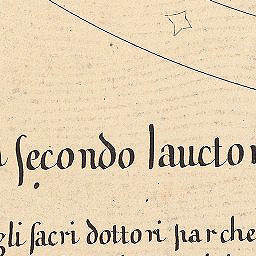 secondo lauctor
gli sacri dottori par che